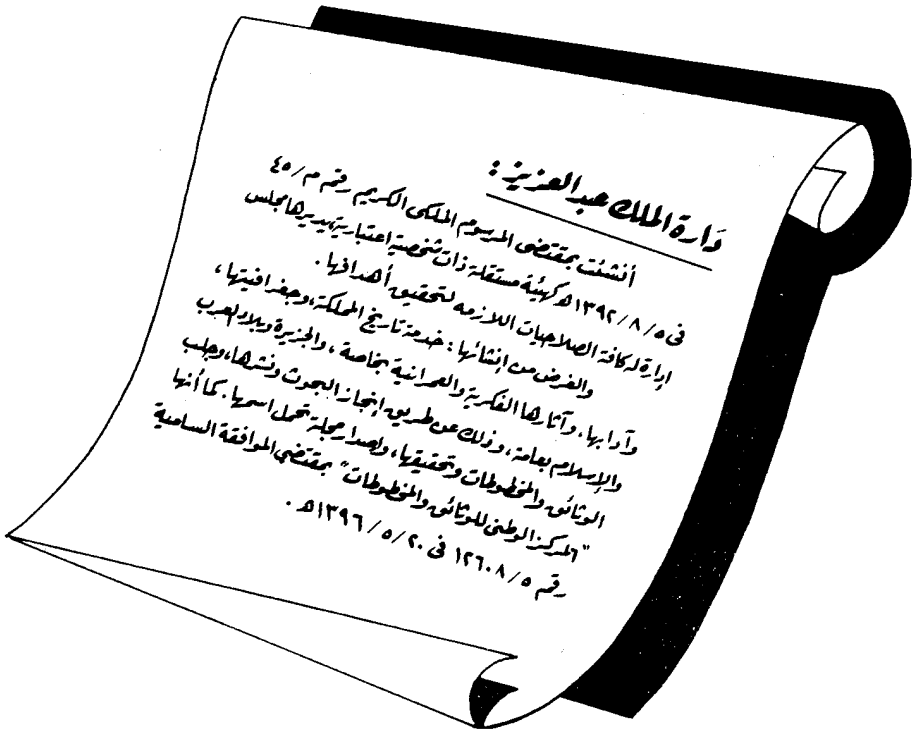 دَارة الملك عبد العزيز :
أنشئت بمقتضى المرسوم الملكى الكريم رقم م/٤٥
فى ١٣٩٢/٨/٥ه كهيئة مستقلة ذات شخصية اعتبارية، يديرها مجلس
إدارة له كافة الصلاحيات اللازمه لتحقيق أهدافها .
والغرض من إنشائها : خدمة تاريخ المملكة، وجغرافيتها ،
وآدابها، وآثارها الفكرية والعمرانية بخاصة ، والجزيرة وبلاد العرب
والإسلام بعامة، وذلك عن طريق إنجاز البحوث ونشرها، وجلب
الوثائق والمخطوطات وتحقيقها، وإصدار مجلة تحمل اسمها. كما أنها
"المركز الوطنى للوثائق والمخطوطات" بمقتضى الموافقة السامية
رقم ١٢٦٠٨/٥ فى ١٣٩٦/٥/٢٠ه .